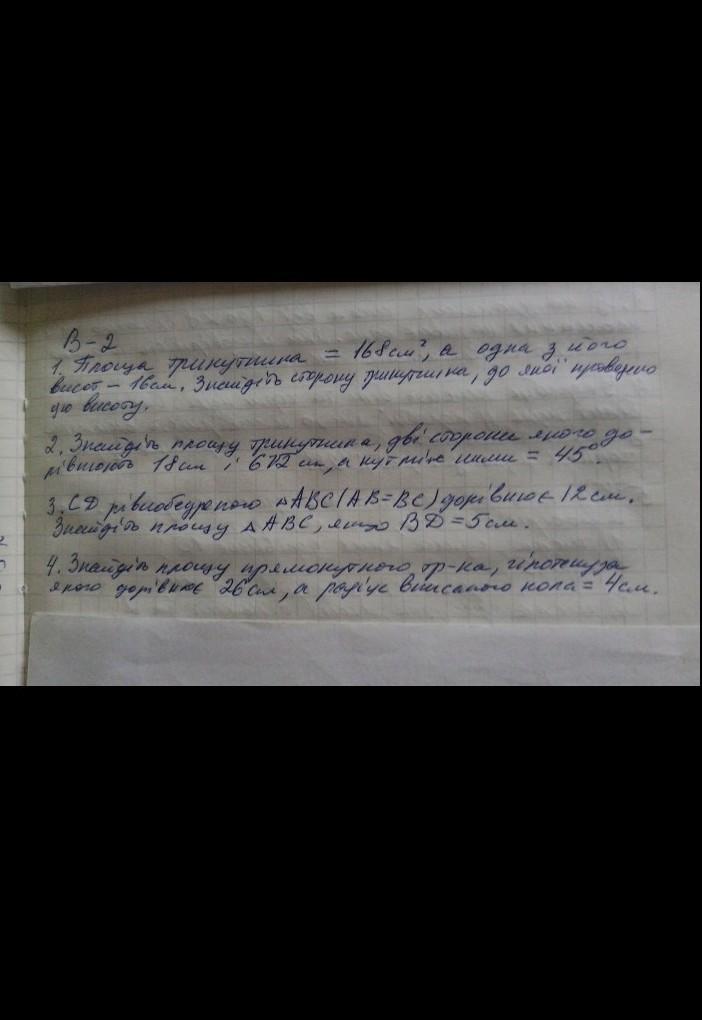 В-2
1. Площа трикутника = 168см², а одна з його
висот – 16см. Знайдіть сторону трикутника, до якої проведено
цю висоту.
2. Знайдіть площу трикутника, дві сторони якого до-
рівнюють 18см і 6√2 см, а кут між ними = 45°.
3. СD рівнобедреного △ABC (AB=BC) дорівнює 12см.
Знайдіть площу △ABC, якщо BD = 5см.
4. Знайдіть площу прямокутного тр-ка, гіпотенуза
якого дорівнює 26см, а радіус вписаного кола = 4см.